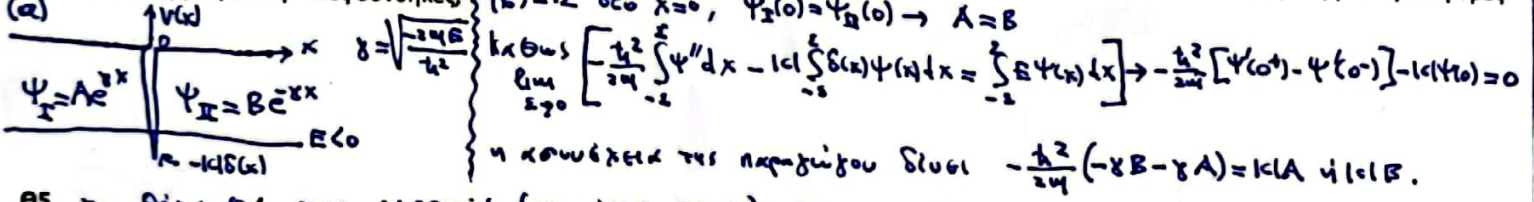 (a)
V(x)
0
x
γ = √(-2mE/ħ²)
Ψ_I = Ae^{γx}
Ψ_II = Be^{-γx}
E<0
-|c|δ(x)
x=0, Ψ_I(0) = Ψ_II(0) → A = B
Καθώς lim_{ε→0} [-ħ²/2m ∫_{-ε}^{ε} Ψ''dx - |c| ∫_{-ε}^{ε} δ(x)Ψ(x)dx = ∫_{-ε}^{ε} EΨ(x)dx] → -ħ²/2m [Ψ'(0⁺) - Ψ'(0⁻)] - |c|Ψ(0) = 0
η ασυνέχεια της παραγώγου δίνει -ħ²/2m (-γB - γA) = |c|A ή |c|B.